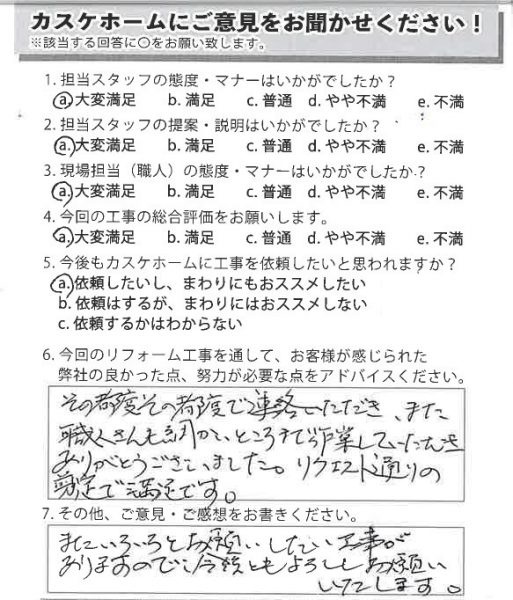 カスケホームにご意見をお聞かせください!
※該当する回答に○をお願い致します。
1. 担当スタッフの態度・マナーはいかがでしたか?
a. 大変満足 b. 満足 c. 普通 d. やや不満 e. 不満
2. 担当スタッフの提案・説明はいかがでしたか?
a. 大変満足 b. 満足 c. 普通 d. やや不満 e. 不満
3. 現場担当（職人）の態度・マナーはいかがでしたか?
a. 大変満足 b. 満足 c. 普通 d. やや不満 e. 不満
4. 今回の工事の総合評価をお願いします。
a. 大変満足 b. 満足 c. 普通 d. やや不満 e. 不満
5. 今後もカスケホームに工事を依頼したいと思われますか?
a. 依頼したいし、まわりにもおススメしたい
b. 依頼はするが、まわりにはおススメしない
c. 依頼するかはわからない
6. 今回のリフォーム工事を通して、お客様が感じられた
弊社の良かった点、努力が必要な点をアドバイスください。
その都度その都度で連絡いただき、また
職人さんも細かいところまで作業していただき
ありがとうございました。リクエスト通りの
剪定で満足です。
7. その他、ご意見・ご感想をお書きください。
またいろいろとお願いしたい工事が
ありますので今後ともよろしくお願い
いたします。